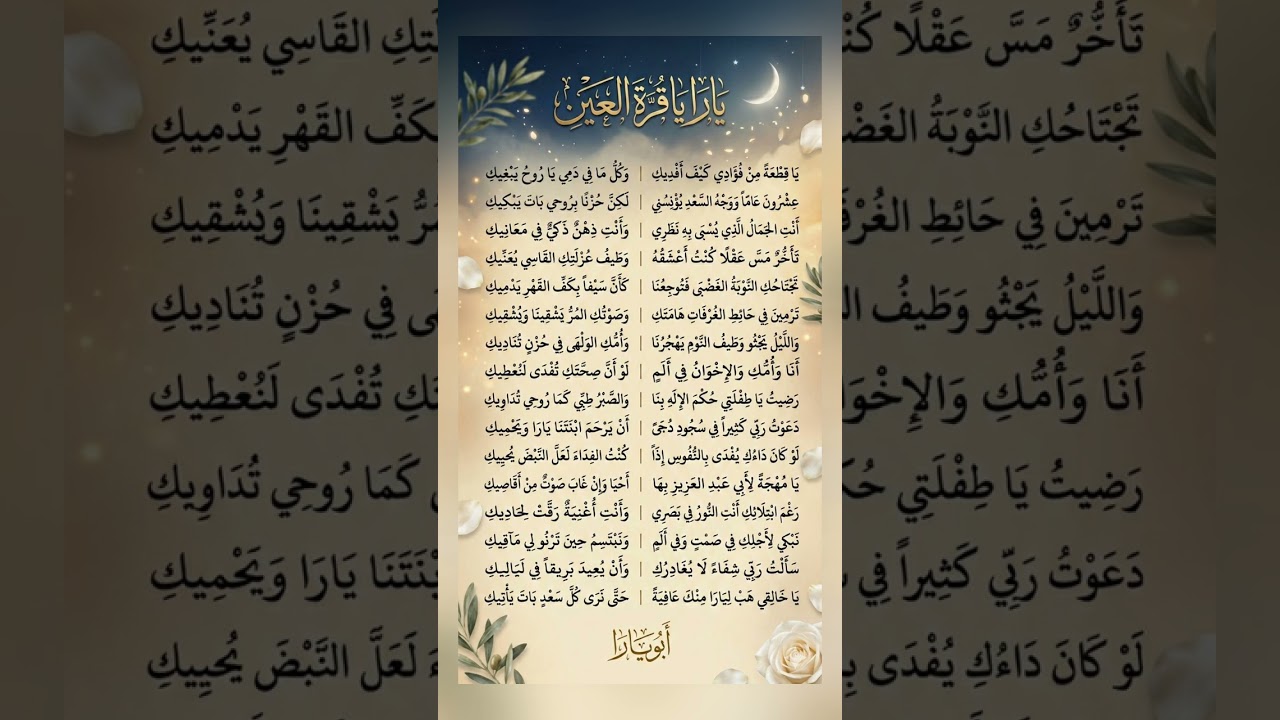 يَارَا يَا قُرَّةَ العَيْنِ
يَا قِطْعَةً مِنْ فُؤَادِي كَيْفَ أَفْدِيكِ | وَكُلُّ مَا فِي دَمِي يَا رُوحُ يَبْغِيكِ
عِشْرُونَ عَامًا وَوَجْهُ السَّعْدِ يُؤْنِسُنِي | لَكِنَّ حُزْنًا بِرُوحِي بَاتَ يَبْكِيكِ
أَنْتِ الجَمَالُ الَّذِي يُسْبَى بِهِ نَظَرِي | وَأَنْتِ ذِهْنٌ ذَكِيٌّ فِي مَعَانِيكِ
تَأَخُّرٌ مَسَّ عَقْلًا كُنْتُ أَعْشَقُهُ | وَطَيفُ عُزْلَتِكِ القَاسِي يُعَنِّيكِ
تَجْتَاحُكِ النَّوْبَةُ الغَضْبَى فَتُوجِعُنَا | كَأَنَّ سَيْفاً بِكَفِّ القَهْرِ يَدْمِيكِ
تَرْمِينَ فِي حَائِطِ الغُرْفَاتِ هَامَتَكِ | وَصَوْتُكِ المُرُّ يَشْقِينَا وَيُشْقِيكِ
وَاللَّيْلُ يَجْثُو وَطَيفُ النَّوْمِ يَهْجُرُنَا | وَأُمُّكِ الوَلْهَى فِي حُزْنٍ تُنَادِيكِ
أَنَا وَأُمُّكِ وَالإِخْوَانُ فِي أَلَمٍ | لَوْ أَنَّ صِحَّتَكِ تُفْدَى لَنُعْطِيكِ
رَضِيتُ يَا طِفْلَتِي حُكْمَ الإِلَهِ بِنَا | وَالصَّبْرُ طِبِّي كَمَا رُوحِي تُدَاوِيكِ
دَعَوْتُ رَبِّي كَثِيراً فِي سُجُودِ دُجَىً | أَنْ يَرْحَمَ ابْنَتَنَا يَارَا وَيَحْمِيكِ
لَوْ كَانَ دَاءُكِ يُفْدَى بِالنُّفُوسِ إِذَاً | كُنْتُ الفِدَاءَ لَعَلَّ النَّبْضَ يُحيِيكِ
يَا مُهْجَةً لِأَبِي عَبْدِ العَزِيزِ بِهَا | أَحْيَا وَإِنْ غَابَ صَوْتٌ مِنْ أَقَاصِيكِ
رَغْمَ ابْتِلَائِكِ أَنْتِ النُّورُ فِي بَصَرِي | وَأَنْتِ أُغْنِيَةٌ رَقَّتْ لِحَادِيكِ
نَبْكِي لِأَجْلِكِ فِي صَمْتٍ وَفِي أَلَمٍ | وَنَبْتَسِمُ حِينَ تَرْنُو لِي مَآقِيكِ
سَأَلْتُ رَبِّي شِفَاءً لَا يُغَادِرُكِ | وَأَنْ يُعِيدَ بَرِيقاً فِي لَيَالِيكِ
يَا خَالِقِي هَبْ لِيَارَا مِنْكَ عَافِيَةً | حَتَّى نَرَى كُلَّ سَعْدٍ بَاتَ يَأْتِيكِ
أَبُو يَارَا